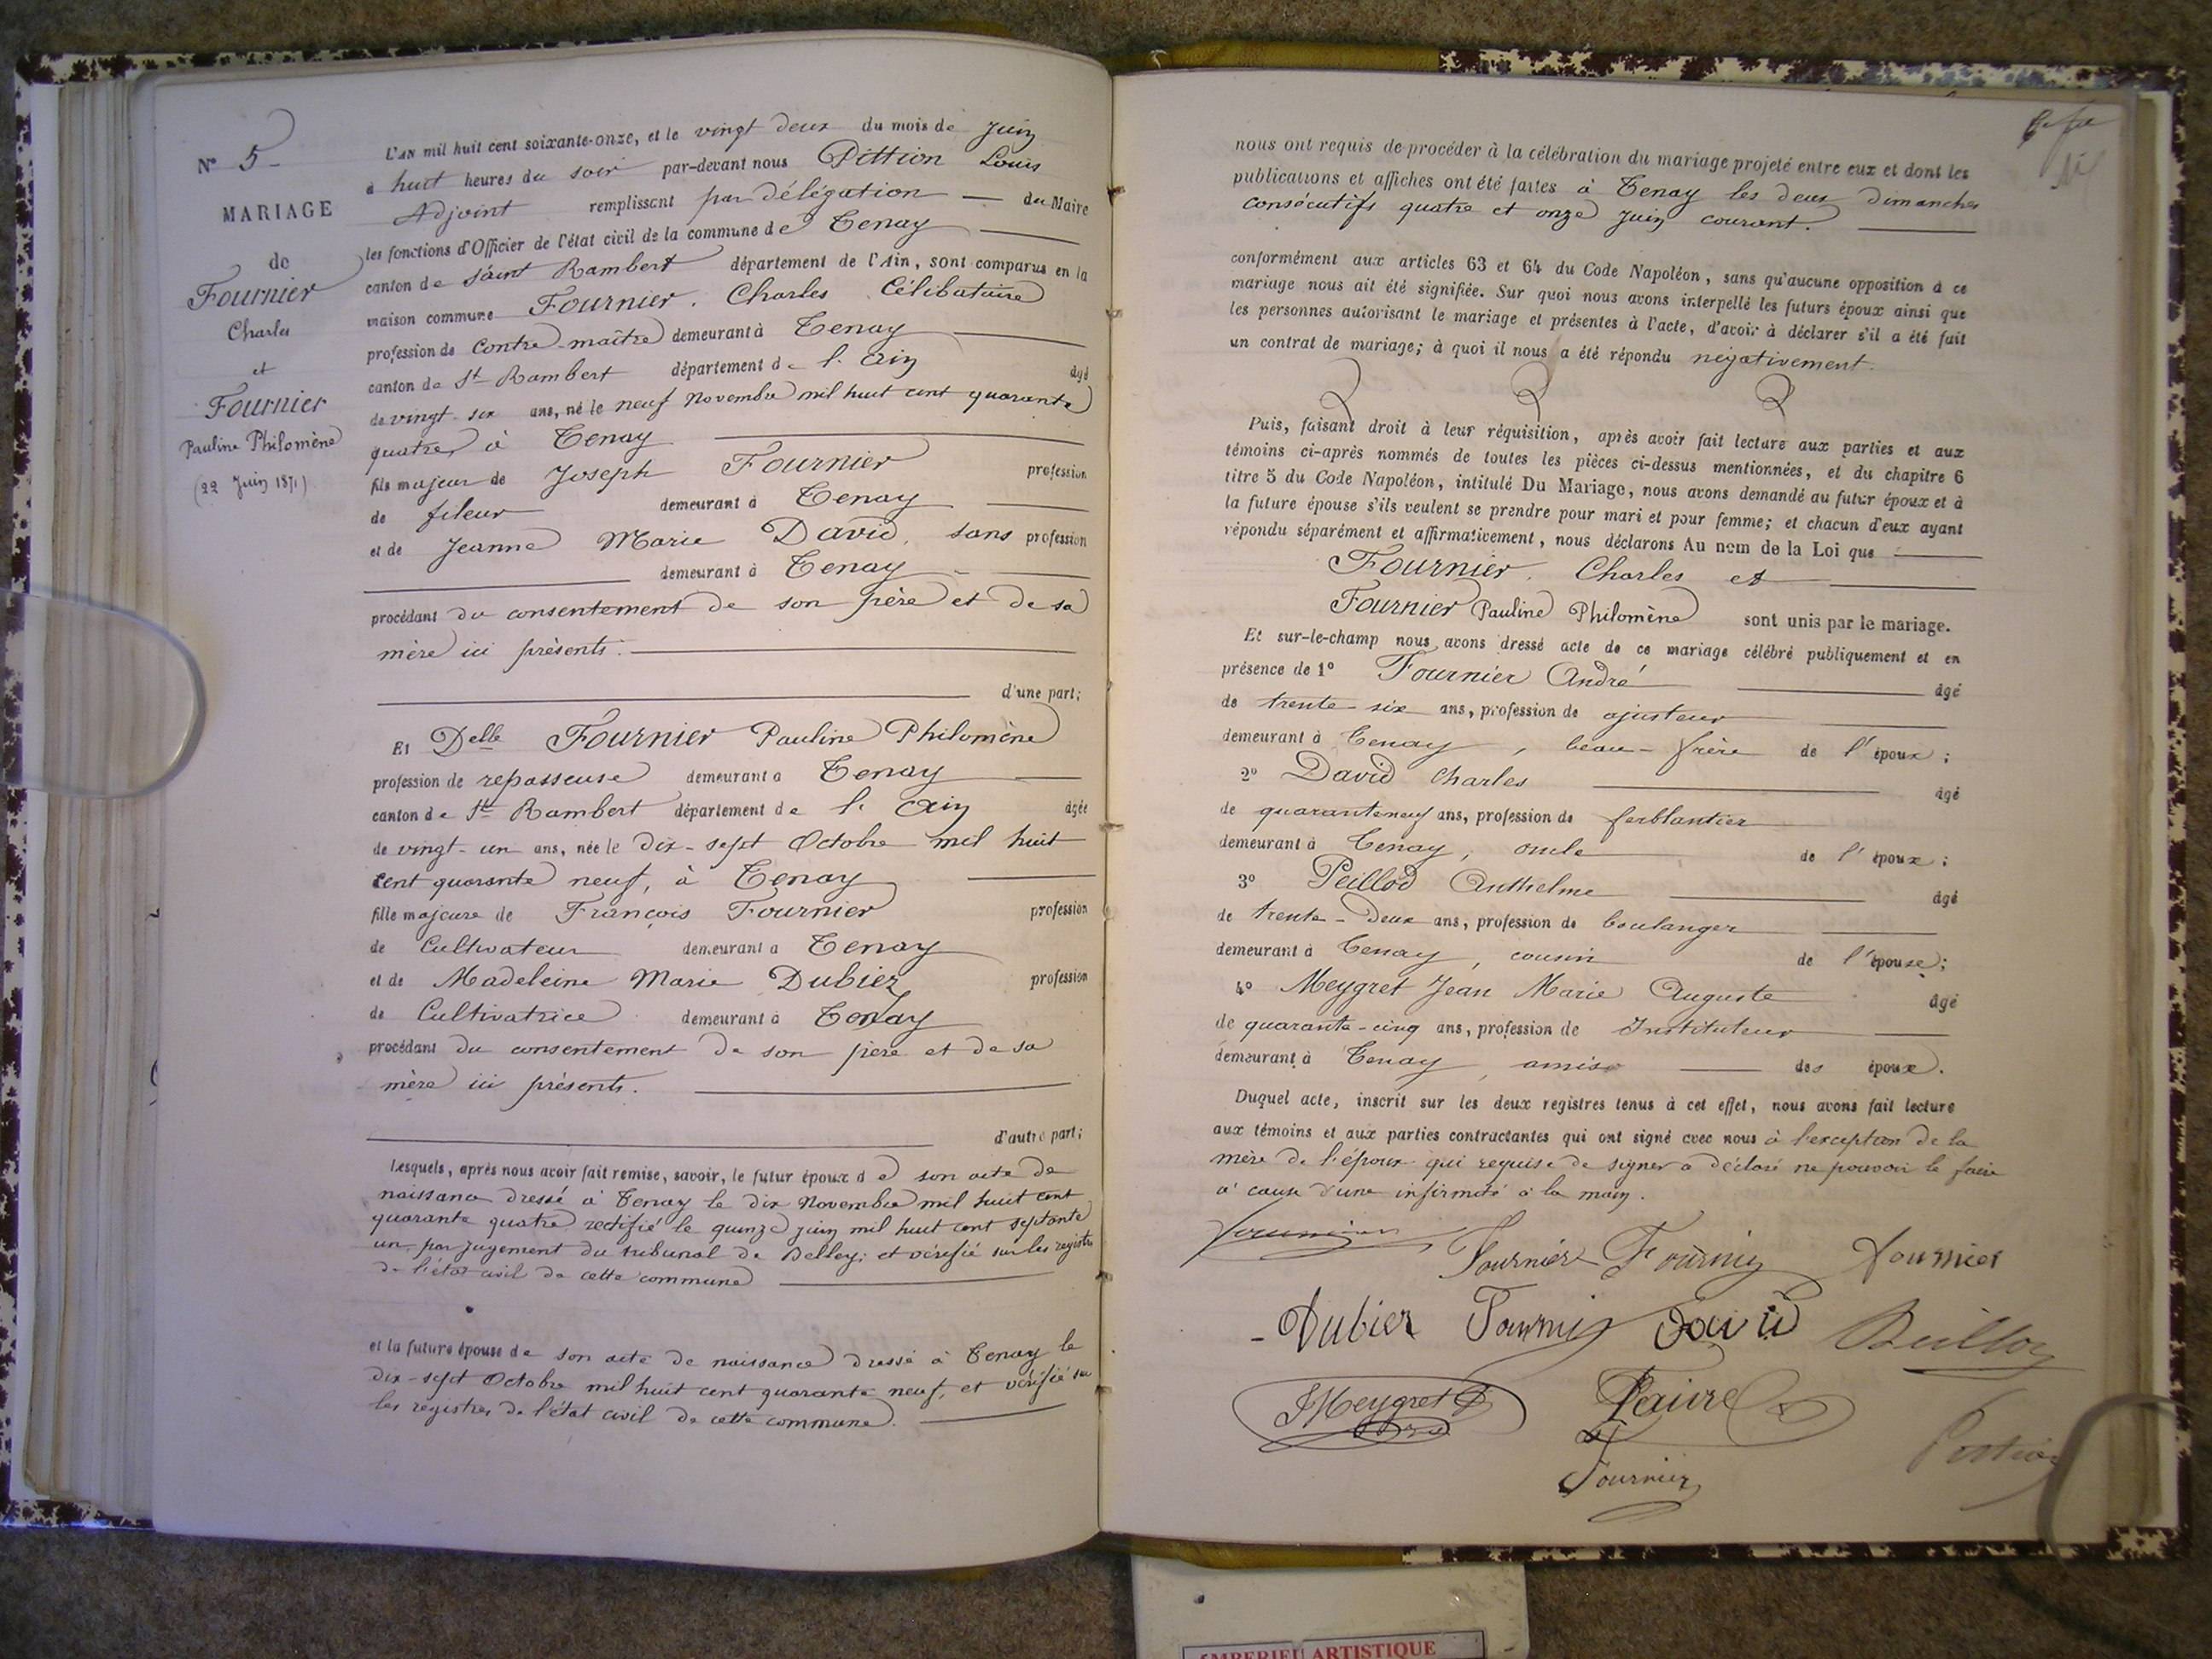 N° 5-
MARIAGE
de
Fournier
Charles
et
Fournier
Pauline Philomène
(22 Juin 1871)
L'AN mil huit cent soixante-onze, et le vingt deux du mois de Juin
à huit heures du soir par-devant nous Pittion Louis
Adjoint remplissant par délégation — du Maire
les fonctions d'Officier de l'état civil de la commune de Tenay
canton de Saint Rambert département de l'Ain, sont comparus en la
maison commune Fournier. Charles Célibataire
profession de Contre-maître demeurant à Tenay
canton de St Rambert département de l'Ain âgé
de vingt-six ans, né le neuf Novembre mil huit cent quarante
quatre à Tenay
fils majeur de Joseph Fournier profession
de fileur demeurant à Tenay
et de Jeanne Marie David, sans profession
demeurant à Tenay
procédant du consentement de son père et de sa
mère ici présents.
d'une part;
Et Delle Fournier Pauline Philomène
profession de repasseuse demeurant à Tenay
canton de St Rambert département de l'Ain âgée
de vingt-un ans, née le dix-sept Octobre mil huit
cent quarante neuf, à Tenay
fille majeure de François Fournier profession
de Cultivateur demeurant à Tenay
et de Madeleine Marie Dubiez profession
de Cultivatrice demeurant à Tenay
procédant du consentement de son père et de sa
mère ici présents.
d'autre part;
Lesquels, après nous avoir fait remise, savoir, le futur époux de son acte de
naissance dressé à Tenay le dix Novembre mil huit cent
quarante quatre rectifié le quinze juin mil huit cent septante
un, par jugement du tribunal de Belley; et vérifié sur les registres
de l'état civil de cette commune
et la future épouse de son acte de naissance dressé à Tenay le
dix-sept Octobre mil huit cent quarante neuf, et vérifié sur
les registres de l'état civil de cette commune.
nous ont requis de procéder à la célébration du mariage projeté entre eux et dont les
publications et affiches ont été faites à Tenay les deux dimanches
consécutifs quatre et onze Juin courant.
conformément aux articles 63 et 64 du Code Napoléon, sans qu'aucune opposition à ce
mariage nous ait été signifiée. Sur quoi nous avons interpellé les futurs époux ainsi que
les personnes autorisant le mariage et présentes à l'acte, d'avoir à déclarer s'il a été fait
un contrat de mariage; à quoi il nous a été répondu négativement.
Puis, faisant droit à leur réquisition, après avoir fait lecture aux parties et aux
témoins ci-après nommés de toutes les pièces ci-dessus mentionnées, et du chapitre 6
titre 5 du Code Napoléon, intitulé Du Mariage, nous avons demandé au futur époux et à
la future épouse s'ils veulent se prendre pour mari et pour femme; et chacun d'eux ayant
répondu séparément et affirmativement, nous déclarons Au nom de la Loi que
Fournier, Charles et
Fournier Pauline Philomène sont unis par le mariage.
Et sur-le-champ nous avons dressé acte de ce mariage célébré publiquement et en
présence de 1° Fournier André âgé
de trente-six ans, profession de ajusteur
demeurant à Tenay, beau-frère de l'époux;
2° David Charles âgé
de quaranteneuf ans, profession de ferblantier
demeurant à Tenay, oncle de l'époux;
3° Peillod Anthelme âgé
de trente-deux ans, profession de boulanger
demeurant à Tenay, cousin de l'épouse;
4° Meygret Jean Marie Auguste âgé
de quarante-cinq ans, profession de Instituteur
demeurant à Tenay, amis des époux.
Duquel acte, inscrit sur les deux registres tenus à cet effet, nous avons fait lecture
aux témoins et aux parties contractantes qui ont signé avec nous à l'exception de la
mère de l'époux qui requise de signer a déclaré ne pouvoir le faire
à cause d'une infirmité à la main.
Fournier Fournier Fournier
Dubiez Fournier David
JMeygret Faivre
Fournier
AMBERIEU ARTISTIQUE